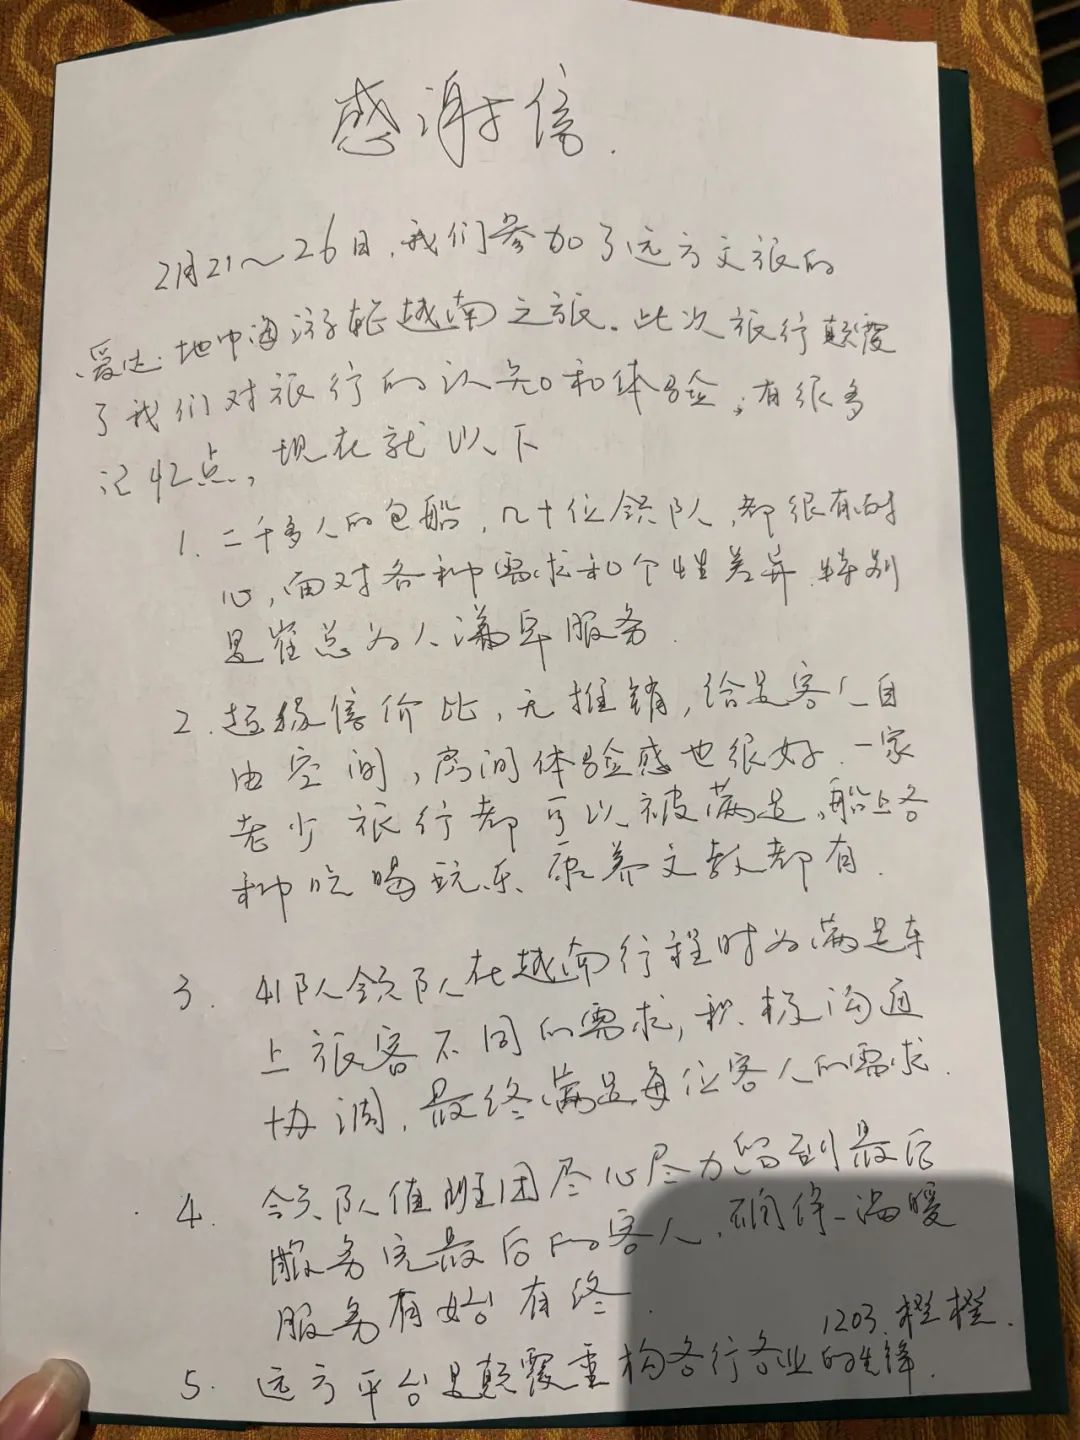 感谢信.
2月21~26日,我们参加了远方文旅的
爱达·地中海游轮越南之旅。此次旅行颠覆
了我们对旅行的认知和体验,有很多
记忆点,现在就以下
1. 二千多人的包船,几十位领队,都很有耐
心,面对各种需求和个性差异.特别
是崔总为人谦卑服务.
2. 超级倍价比,无推销,给足客人自
由空间,房间体验感也很好.一家
老少旅行都可以被满足,船上各
种吃喝玩乐康养文教都有.
3. 41队领队在越南行程时为满足车
上旅客不同的需求,积极沟通
协调,最终满足每位客人的需求.
4. 领队值班团尽心尽力留到最后
服务完最后的客人,确保温暖
服务有始有终.
1203.橙橙.
5. 远方平台是颠覆重构各行各业的先锋.